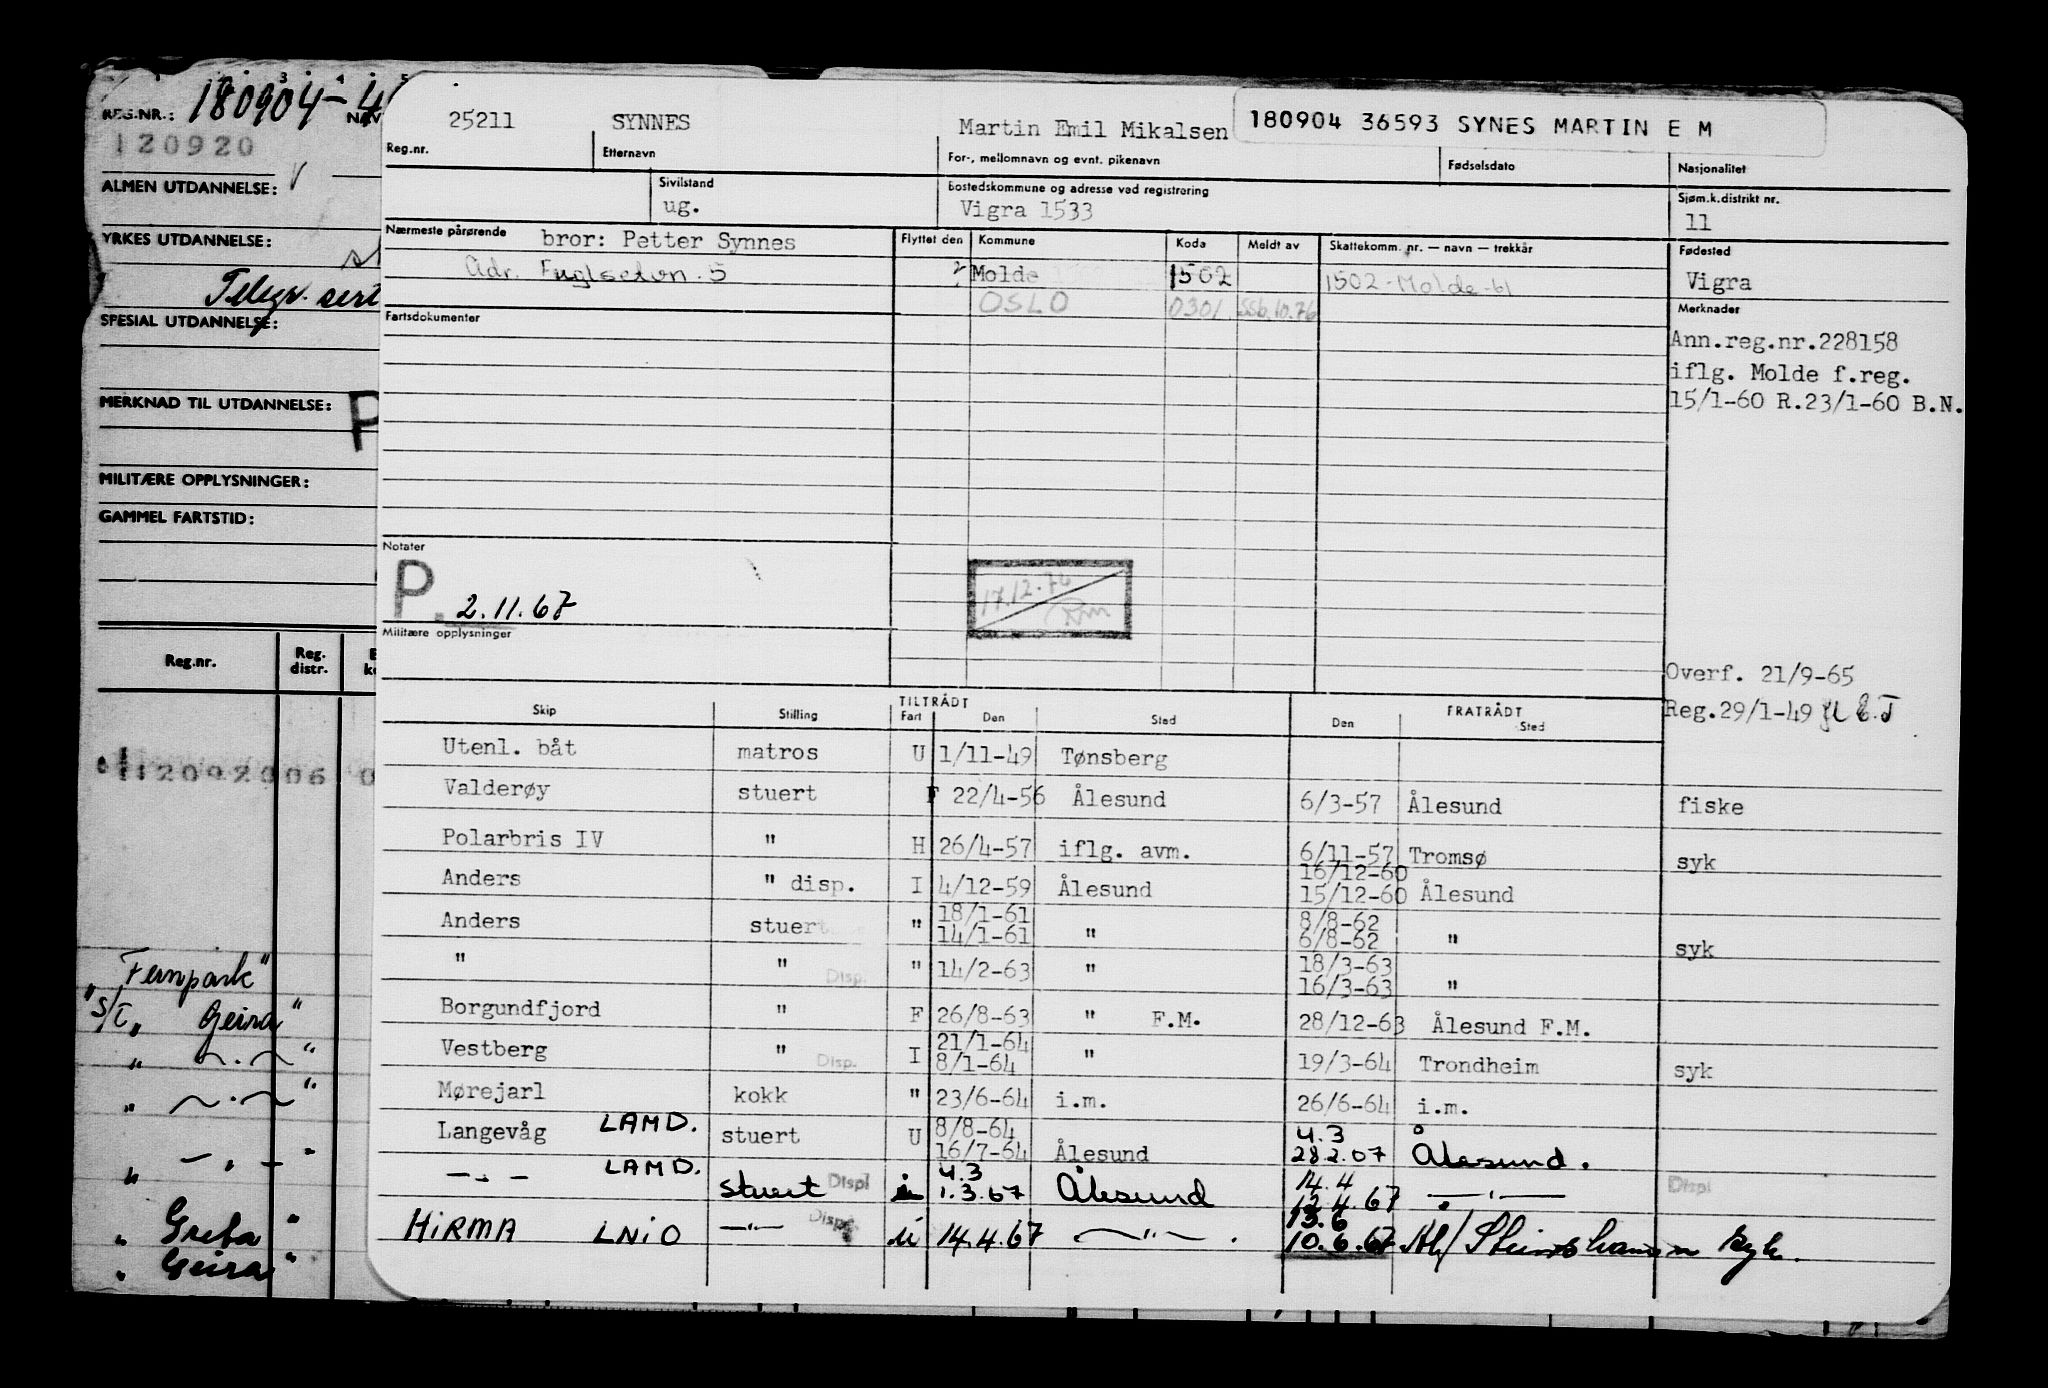 REG.NR.: 180904-4
NAV
120920
ALMEN UTDANNELSE:
YRKES UTDANNELSE:
Telegr. sert
SPESIAL UTDANNELSE:
MERKNAD TIL UTDANNELSE:
P
MILITÆRE OPPLYSNINGER:
GAMMEL FARTSTID:
Reg.nr. Reg. distr.
"Fernpark"
"S/T" Geira"
" —"— "
" —"— "
" —"— "
" Greta "
" Geira "
25211 SYNNES Martin Emil Mikalsen 180904 36593 SYNES MARTIN E M
Reg.nr. Etternavn For-, mellomnavn og evnt. pikenavn Fødselsdato Nasjonalitet
Sivilstand Bostedskommune og adresse ved registrering Sjøm.k.distrikt nr.
ug. Vigra 1533 11
Nærmeste pårørende bror: Petter Synnes Flyttet den Kommune Kode Meldt av Skattekomm. nr. — navn — trekkår Fødested
Adr. Fuglsetvn. 5 Molde 1502 1502-Molde-61 Vigra
OSLO 0301 SSb.10.76
Fartsdokumenter Merknader
Ann.reg.nr.228158
iflg. Molde f.reg.
15/1-60 R.23/1-60 B.N.
Notater
P. 2.11.67
17.12.74
Militære opplysninger
Overf. 21/9-65
Reg.29/1-49
TILTRÅDT FRATRÅDT
Skip Stilling Fart Den Sted Den Sted
Utenl. båt matros U 1/11-49 Tønsberg
Valderøy stuert F 22/4-56 Ålesund 6/3-57 Ålesund fiske
Polarbris IV " H 26/4-57 iflg. avm. 6/11-57 Tromsø syk
16/12-60
Anders " disp. I 4/12-59 Ålesund 15/12-60 Ålesund
18/1-61 8/8-62
Anders stuert " 14/1-61 " 6/8-62 " syk
18/3-63
" " Disp. " 14/2-63 " 16/3-63 "
Borgundfjord " F 26/8-63 " F.M. 28/12-63 Ålesund F.M.
21/1-64
Vestberg " Disp. I 8/1-64 " 19/3-64 Trondheim syk
Mørejarl kokk " 23/6-64 i.m. 26/6-64 i.m.
8/8-64 4.3
Langevåg LAMD. stuert U 16/7-64 Ålesund 28.2.67 Ålesund.
4.3 14.4
—"— LAMD. stuert Displ 1.3.67 Ålesund 12.4.67 —"— Displ
13.6
HIRMA LNIO —"— Disp. 14.4.67 —"— 10.6.67